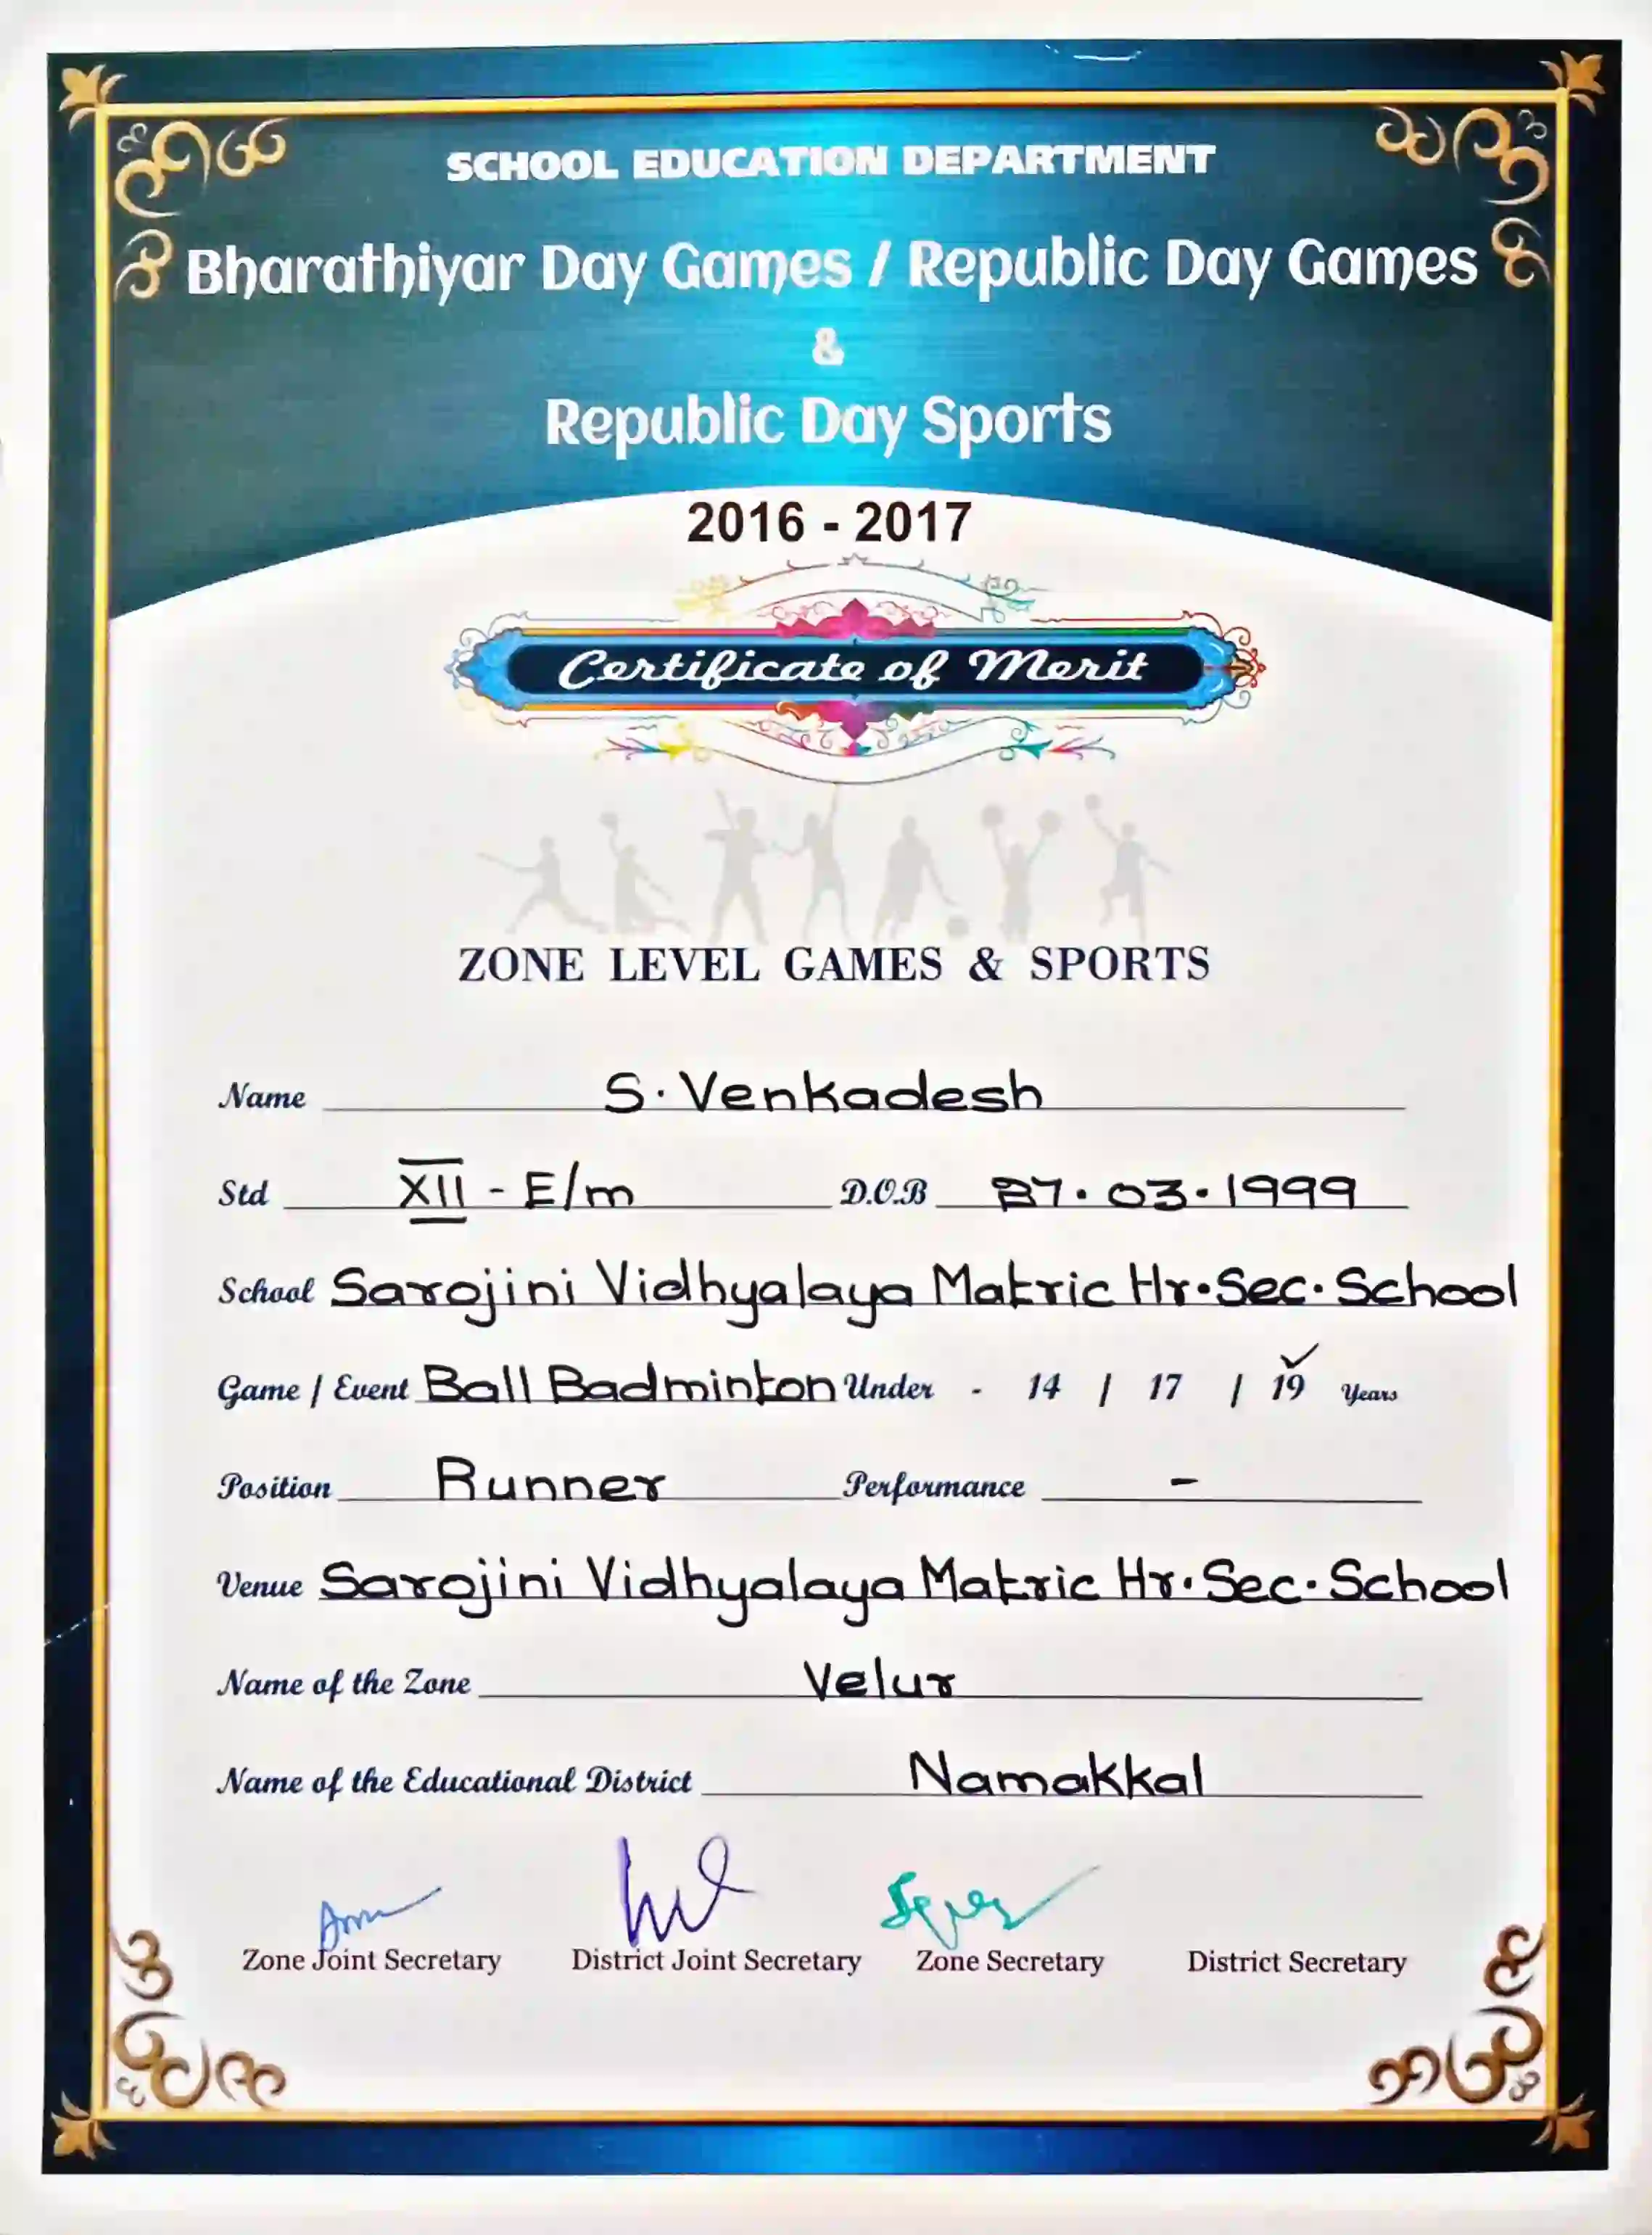 SCHOOL EDUCATION DEPARTMENT
Bharathiyar Day Games / Republic Day Games
&
Republic Day Sports
2016 - 2017
Certificate of Merit
ZONE LEVEL GAMES & SPORTS
Name S. Venkadesh
Std XII - E/m D.O.B 27.03.1999
School Sarojini Vidhyalaya Matric Hr.Sec.School
Game / Event Ball Badminton Under - 14 / 17 / 19 ✓ Years
Position Runner Performance -
Venue Sarojini Vidhyalaya Matric Hr.Sec.School
Name of the Zone Velur
Name of the Educational District Namakkal
Zone Joint Secretary District Joint Secretary Zone Secretary District Secretary